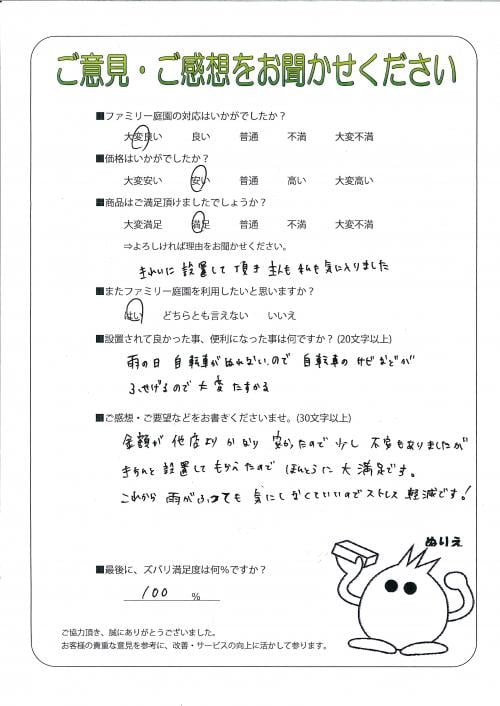 ご意見・ご感想をお聞かせください
■ファミリー庭園の対応はいかがでしたか？
大変良い 良い 普通 不満 大変不満
■価格はいかがでしたか？
大変安い 安い 普通 高い 大変高い
■商品はご満足頂けましたでしょうか？
大変満足 満足 普通 不満 大変不満
⇒よろしければ理由をお聞かせください。
きれいに設置して頂き主人も私も気に入りました
■またファミリー庭園を利用したいと思いますか？
はい どちらとも言えない いいえ
■設置されて良かった事、便利になった事は何ですか？(20文字以上)
雨の日 自転車がぬれないので 自転車の サビなどが
ふせげるので大変たすかる
■ご感想・ご要望などをお書きくださいませ。(30文字以上)
金額が他店よりかなり安かったので少し不安もありましたが
きちんと設置してもらえたのでほんとうに大満足です。
これから雨がふっても気にしなくていいのでストレス軽減です！
ぬりえ
■最後に、ズバリ満足度は何%ですか？
100 %
ご協力頂き、誠にありがとうございました。
お客様の貴重な意見を参考に、改善・サービスの向上に活かして参ります。